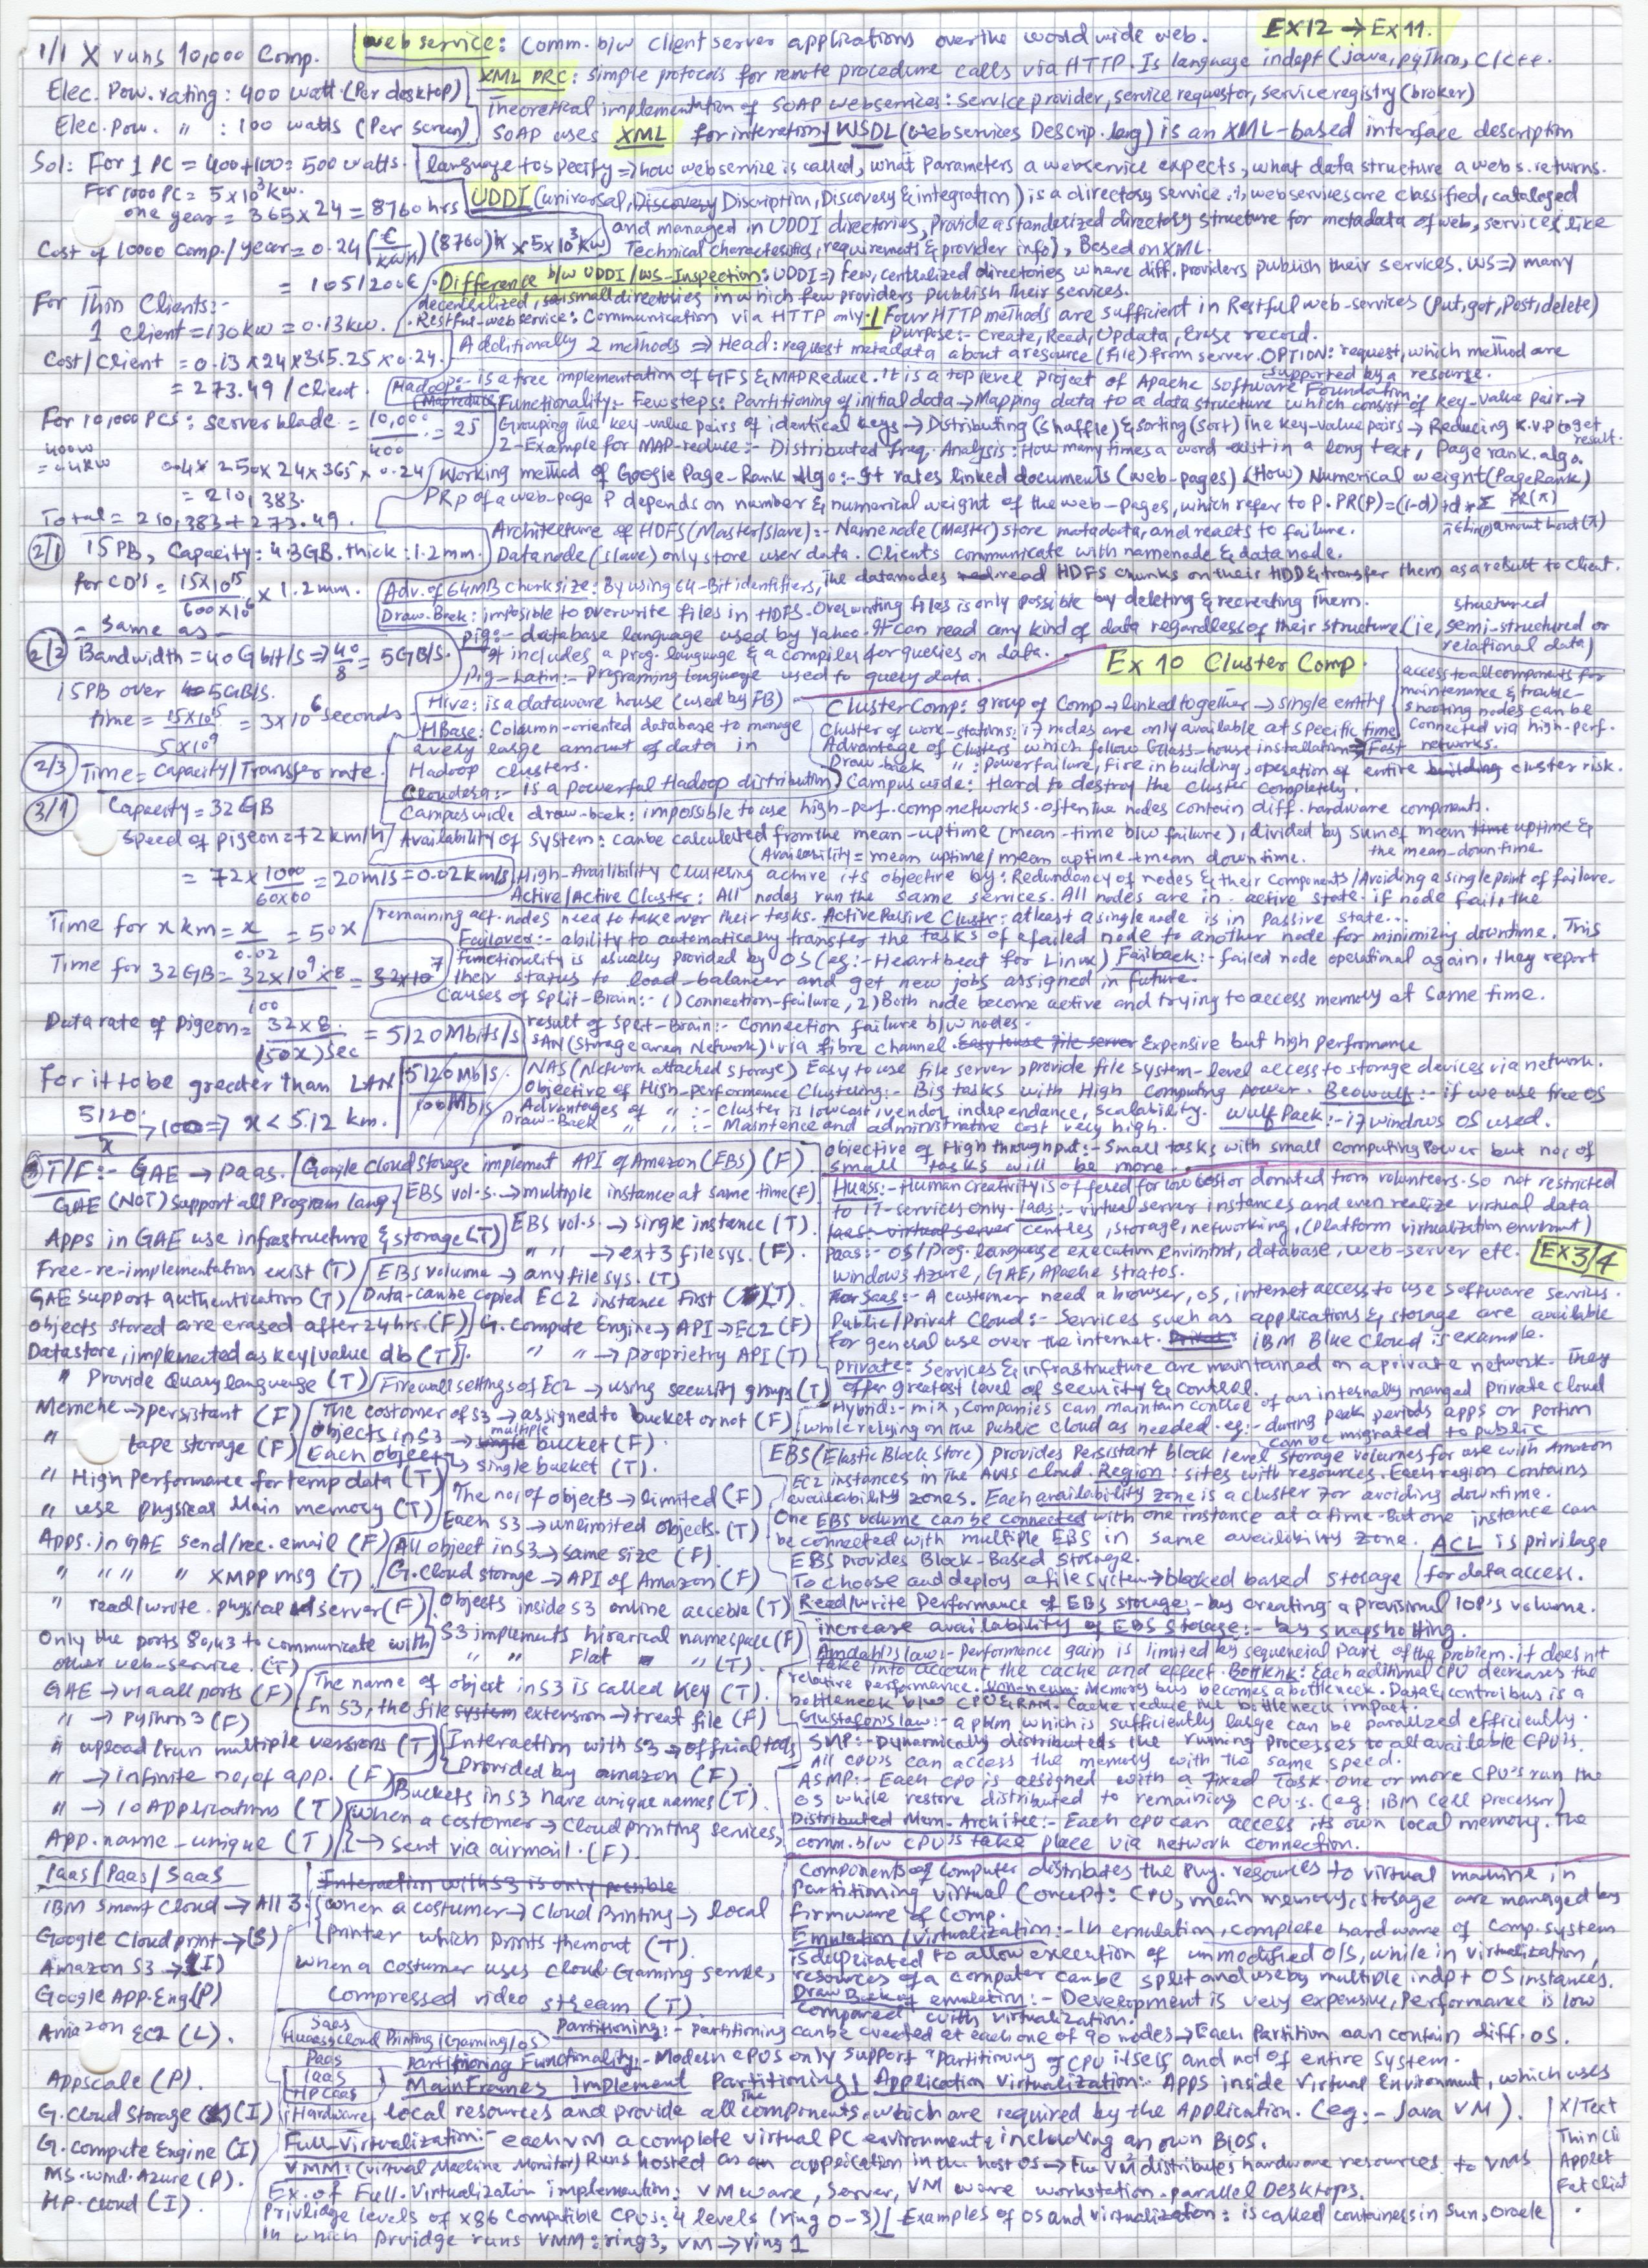 EX12 → EX11.
1/1 X runs 10,000 Comp.
Elec. Pow. rating: 400 watt (Per desktop)
Elec. Pow. " : 100 watts (Per screen)
Sol: For 1 PC = 400+100 = 500 watts.
For 1000 PC = 5 x 10³ kw.
one year = 365 x 24 = 8760 hrs
Cost of 10000 Comp./year = 0.24 (€/kwh) (8760)h x 5x10³ kw
= 1051200€
For Thin Clients:-
1 Client = 130kw = 0.13kw.
Cost/Client = 0.13 x 24 x 365.25 x 0.24
= 273.49 / Client.
For 10,000 PCs: server blade = 10,000/400 = 25
400w = 0.4kw
0.4 x 250 x 24 x 365 x 0.24
= 210,383.
Total = 210,383 + 273.49.
2/1 15PB, Capacity: 4.3GB. thick: 1.2mm.
for CD's = 15x10¹⁵/600x10⁶ x 1.2mm.
= same as -
2/2 Bandwidth = 40Gbit/s => 40/8 = 5GB/s.
15PB over 5GB/s.
time = 15x10¹⁵/5x10⁹ = 3x10⁶ seconds
2/3 Time = Capacity/Transfer rate.
3/1 Capacity = 32GB
Speed of pigeon = 72km/h
= 72 x 1000/60x60 = 20m/s = 0.02km/s
Time for x km = x/0.02 = 50x
Time for 32GB = 32x10⁹x8/100 = 32x10⁷
Data rate of pigeon = 32x8/(50x)sec = 5120Mbits/s
For it to be greater than LAN 5120Mb/s. 100Mb/s
5120/x > 100 => x < 5.12 km.
web service: Comm. b/w client server applications over the world wide web.
XML PRC: simple protocols for remote procedure calls via HTTP. Is language indept (java, python, C/C++.
Theoretical implementation of SOAP webservices: Service provider, service requestor, service registry (broker)
SOAP uses XML for interation WSDL (webservices Descrip. lang) is an XML-based interface description
language to specify => how webservice is called, what parameters a webservice expects, what data structure a webs. returns.
UDDI (universal, Discovery Discription, Discovery & integration) is a directory service, webservices are classified, cataloged
and managed in UDDI directories, Provide a standerized directory structure for metadata of web, services (like
Technical charectesitics, requirements & provider info), Based on XML.
Difference b/w UDDI/WS-Inspection: UDDI => few, centralized directories where diff. providers publish their services. WS => many
decentralized, small directories in which few providers publish their services.
Restful-web service: Communication via HTTP only. Four HTTP methods are sufficient in Restful web-services (put, get, Post, delete)
Purpose:- Create, Read, Updata, Erase record.
Additionally 2 methods => Head: request metadata about a resource (file) from server. OPTION: request, which method are
supported by a resourse.
Hadoop:- is a free implementation of GFS & MAPReduce. It is a top level project of Apache Software Foundation
Functionality:- Few steps: Partitioning of initial data → Mapping data to a data structure which consist of key-value pair. →
Grouping the key-value pairs of identical keys → Distributing (shuffle) & sorting (sort) the key-value pairs → Reducing K.V.P to get
result.
2-Example for MAP-reduce:- Distributed freq. Analysis: How many times a word exist in a long text, Page rank. algo.
Working method of Google Page-Rank Algo:- It rates linked documents (web-pages) (How) Numerical weight (PageRank)
PRp of a web-page P depends on number & numerical weight of the web-pages, which refer to P. PR(P)=(1-d)+d*Σ PR(π)
Architecture of HDFS (Master/slave):- Namenode (Master) store matadata, and reacts to failure.
Datanode (slave) only store user data. Clients communicate with namenode & datanode.
Adv. of 64MB chunk size: By using 64-Bit identifiers, The datanodes read HDFS chunks on their HDD & transfer them as a result to client.
Draw-Back: imposible to overwrite files in HDFS. Overwriting files is only possible by deleting & recreating them.
Pig:- database language used by Yahoo. It can read any kind of data regardless of their structure (ie, semi-structured or
structured
relational data)
It includes a prog. language & a compiler for queries on data.
Pig-Latin:- Programing language used to query data.
Hive: is a dataware house (used by FB)
HBase: Column-oriented database to manage
a very large amount of data in
Hadoop clusters.
Cloudera:- is a powerful Hadoop distribution
Ex 10 Cluster Comp
Cluster Comp: group of Comp → linked together → single entity
Cluster of work-stations: if nodes are only available at specific time
Advantage of Clusters which follow Glass-house installation => Fast
access to all components for
maintenance & trouble-
shooting nodes can be
connected via high-perf.
networks.
Draw-back " : Power failure, fire in building, operation of entire building cluster risk.
Campus wide: Hard to destroy the cluster completely.
Campus wide draw-back: impossible to use high-perf. comp networks. often the nodes contain diff. hardware components.
Availability of System: can be calculated from the mean-uptime (mean-time b/w failure), divided by sum of mean time uptime &
the mean-down time
(Availability = mean uptime/mean uptime + mean down time.
High-Availibility Clustering achive its objective by: Redundancy of nodes & their components/Avoiding a single point of failure.
Active/Active Cluster: All nodes run the same services. All nodes are in active state. if node fail, the
remaining act. nodes need to take over their tasks. Active Passive Cluster: atleast a single node is in Passive state...
Failover:- ability to automatically transfer the tasks of a failed node to another node for minimizing downtime. This
functionality is usually provided by OS (eg:- Heartbeat for Linux) Failback:- failed node operational again, they report
their status to load-balancer and get new jobs assigned in future.
Causes of Split-Brain:- 1) connection-failure, 2) Both node become active and trying to access memory at same time.
result of Split-Brain:- Connection failure b/w nodes.
SAN (Storage area Network) via fibre channel. Easy to use file server Expensive but high performance
NAS (Network attached storage) Easy to use file server, provide file system-level access to storage devices via network.
Objective of High-performance Clustering:- Big tasks with High Computing power. Beowulf:- if we use free OS
Advantages of " :- cluster is low cost, vendor independance, scalability. Wulf Pack:- if windows OS used.
Draw-Back " " :- Maintence and administrative cost very high.
objective of High throughput:- Small tasks with small computing power but no. of
small tasks will be more.
3 T/F:- GAE → Paas.
GAE (NOT) Support all Program lang.
Apps in GAE use infrastructure & storage (T)
Free-re-implementation exist (T)
GAE support authentication (T)
objects stored are erased after 24hrs. (F)
Datastore, implemented as key/value db (T)
" Provide Quary language (T)
Memche → persistant (F)
" tape storage (F)
" High Performance for temp data (T)
" use physical Main memory (T)
Apps. in GAE send/rec. email (F)
" " " " XMPP msg (T)
" read/write. physical server (F)
Only the ports 80,43 to communicate with
other web-service. (T)
GAE → via all ports (F)
" → Python 3 (F)
" upload/run multiple versions (T)
" → infinite no. of app. (F)
" → 10 Applications (T)
App. name - unique (T)
Google Cloud Storage implement API of Amazon (EBS) (F)
EBS vol.s. → multiple instance at same time (F)
EBS vol.s → single instance (T).
" " → ext3 filesys. (F).
EBS volume → any file sys. (T)
Data can be copied EC2 instance First (T).
G. Compute Engine → API → EC2 (F)
" " → proprietry API (T)
Firewall settings of EC2 → using security groups (T)
The costomer of S3 → assigned to bucket or not (F)
Objects in S3 → multiple bucket (F).
Each object → single bucket (T).
The no. of objects → limited (F)
Each S3 → unlimited objects. (T)
All object in S3 → same size (F).
G. Cloud storage → API of Amazon (F)
Objects inside S3 online acceble (T)
S3 implements hirarical namespace (F)
" " Flat " (T).
The name of object in S3 is called key (T).
In S3, the file system extension → treat file (F)
Interaction with S3 → official tools
Provided by amazon (F).
Buckets in S3 have unique names (T).
When a customer → Cloud printing services,
→ Sent via airmail. (F).
Interaction with S3 is only possible
when a costumer → Cloud Printing → local
printer which prints themout (T).
when a costumer uses cloud Gaming servise,
Compressed video stream (T).
Huaas:- Human Creativity is offered for low cost or donated from volunteers. So not restricted
to IT-services only. Iaas:- virtual server instances and even realize virtual data
Iaas virtual server centres, storage, networking, (platform virtualization envirnmt)
Paas:- OS/Prog. language execution envirnmt, database, web-server etc.
EX3/4
windows Azure, GAE, Apache stratos.
For Saas:- A customer need a browser, OS, internet access to use software services.
Public/Privat Cloud:- Services such as applications & storage are available
for general use over the internet. IBM Blue Cloud is example.
Private: Services & infrastructure are maintained on a private network. They
offer greatest level of security & control.
Hybrid:- mix, Companies can maintain control of an internally manged private cloud
while relying on the public cloud as needed. eg:- during peak periods apps or portion
can be migrated to public
EBS (Elastic Block Store) Provides Persistant block level storage volumes for use with Amazon
EC2 instances in the AWS cloud. Region: sites with resources. Each region contains
availability zones. Each availability zone is a cluster for avoiding downtime.
One EBS volume can be connected with one instance at a time. But one instance can
be connected with multiple EBS in same availibility zone. ACL is privilage
for data access.
EBS provides Block-Based storage.
To choose and deploy a file system → blocked based storage
Read/write Performance of EBS storage:- by creating a provisional IOP's volume.
increase availability of EBS Storage:- by snapshotting.
Amdahl's law:- Performance gain is limited by sequencial part of the problem. it does not
take into account the cache and effect. Bottlenk: Each aditional CPU decreases the
relative performance. Von-neum: Memory bus becomes a bottleneck. Data & control bus is a
bottleneck b/w CPU & RAM. Cache reduce the bottleneck impact.
Gustafon's law:- a pblm which is sufficiently large can be paralized efficiently.
SMP:- Dynamically distributeds the running processes to all available CPU's.
All CPU's can access the memory with the same speed.
ASMP:- Each CPU is assigned with a fixed Task. one or more CPU's run the
OS while restore distributed to remaining CPU's. (eg: IBM Cell processor)
Distributed Mem. Architec:- Each CPU can access its own local memory. The
comm. b/w CPU's take place via network connection.
Iaas/Paas/Saas
IBM Smart Cloud → All 3.
Google Cloud print → (S)
Amazon S3 → (I)
Google App. Eng. (P)
Amazon EC2 (I).
Appscale (P).
G. Cloud Storage (I)
G. Compute Engine (I)
MS. Wind. Azure (P).
HP. Cloud (I).
Components of Computer distributes the Phy. resources to virtual machine in
Partitioning virtual Concept: CPU, main memory, storage are managed by
firmware of Comp.
Emulation/virtualization:- In emulation, complete hardware of Comp. system
is duplicated to allow execution of unmodified O/S, while in virtualization,
resources of a computer can be split and use by multiple indpt OS instances.
Draw Back of emulation:- Development is very expensive, Performance is low
compared with virtualization.
Saas
Huaas Cloud Printing/Gaming/OS
Paas
Iaas
HPCaas
Hardware
Partitioning:- Partitioning can be created at each one of 90 nodes → Each Partition can contain diff. OS.
Partitioning Functionality:- Modern CPUS only support "Partitining of CPU itself and not of entire system.
MainFrames implement Partitioning Application Virtualization:- Apps inside Virtual Environment, which uses
the local resources and provide all components, which are required by the Application. (eg:- Java VM).
Full-Virtualization:- each VM a complete virtual PC environment, including an own BIOS.
VMM: (Virtual Machine Monitor) Runs hosted as an application in the host OS → The VM distributes hardware resources to VMs
Ex. of Full. Virtualization implemention: VMware, Server, VM ware workstation. parallel Desktops.
Priviladge levels of x86 Compatible CPUs: 4 levels (ring 0-3) Examples of OS and virtualization: is called containers in Sun, Oracle
In which prvidge runs VMM: ring3, VM → ring 1
X/Text
Thin Cli
Applet
Fat Client